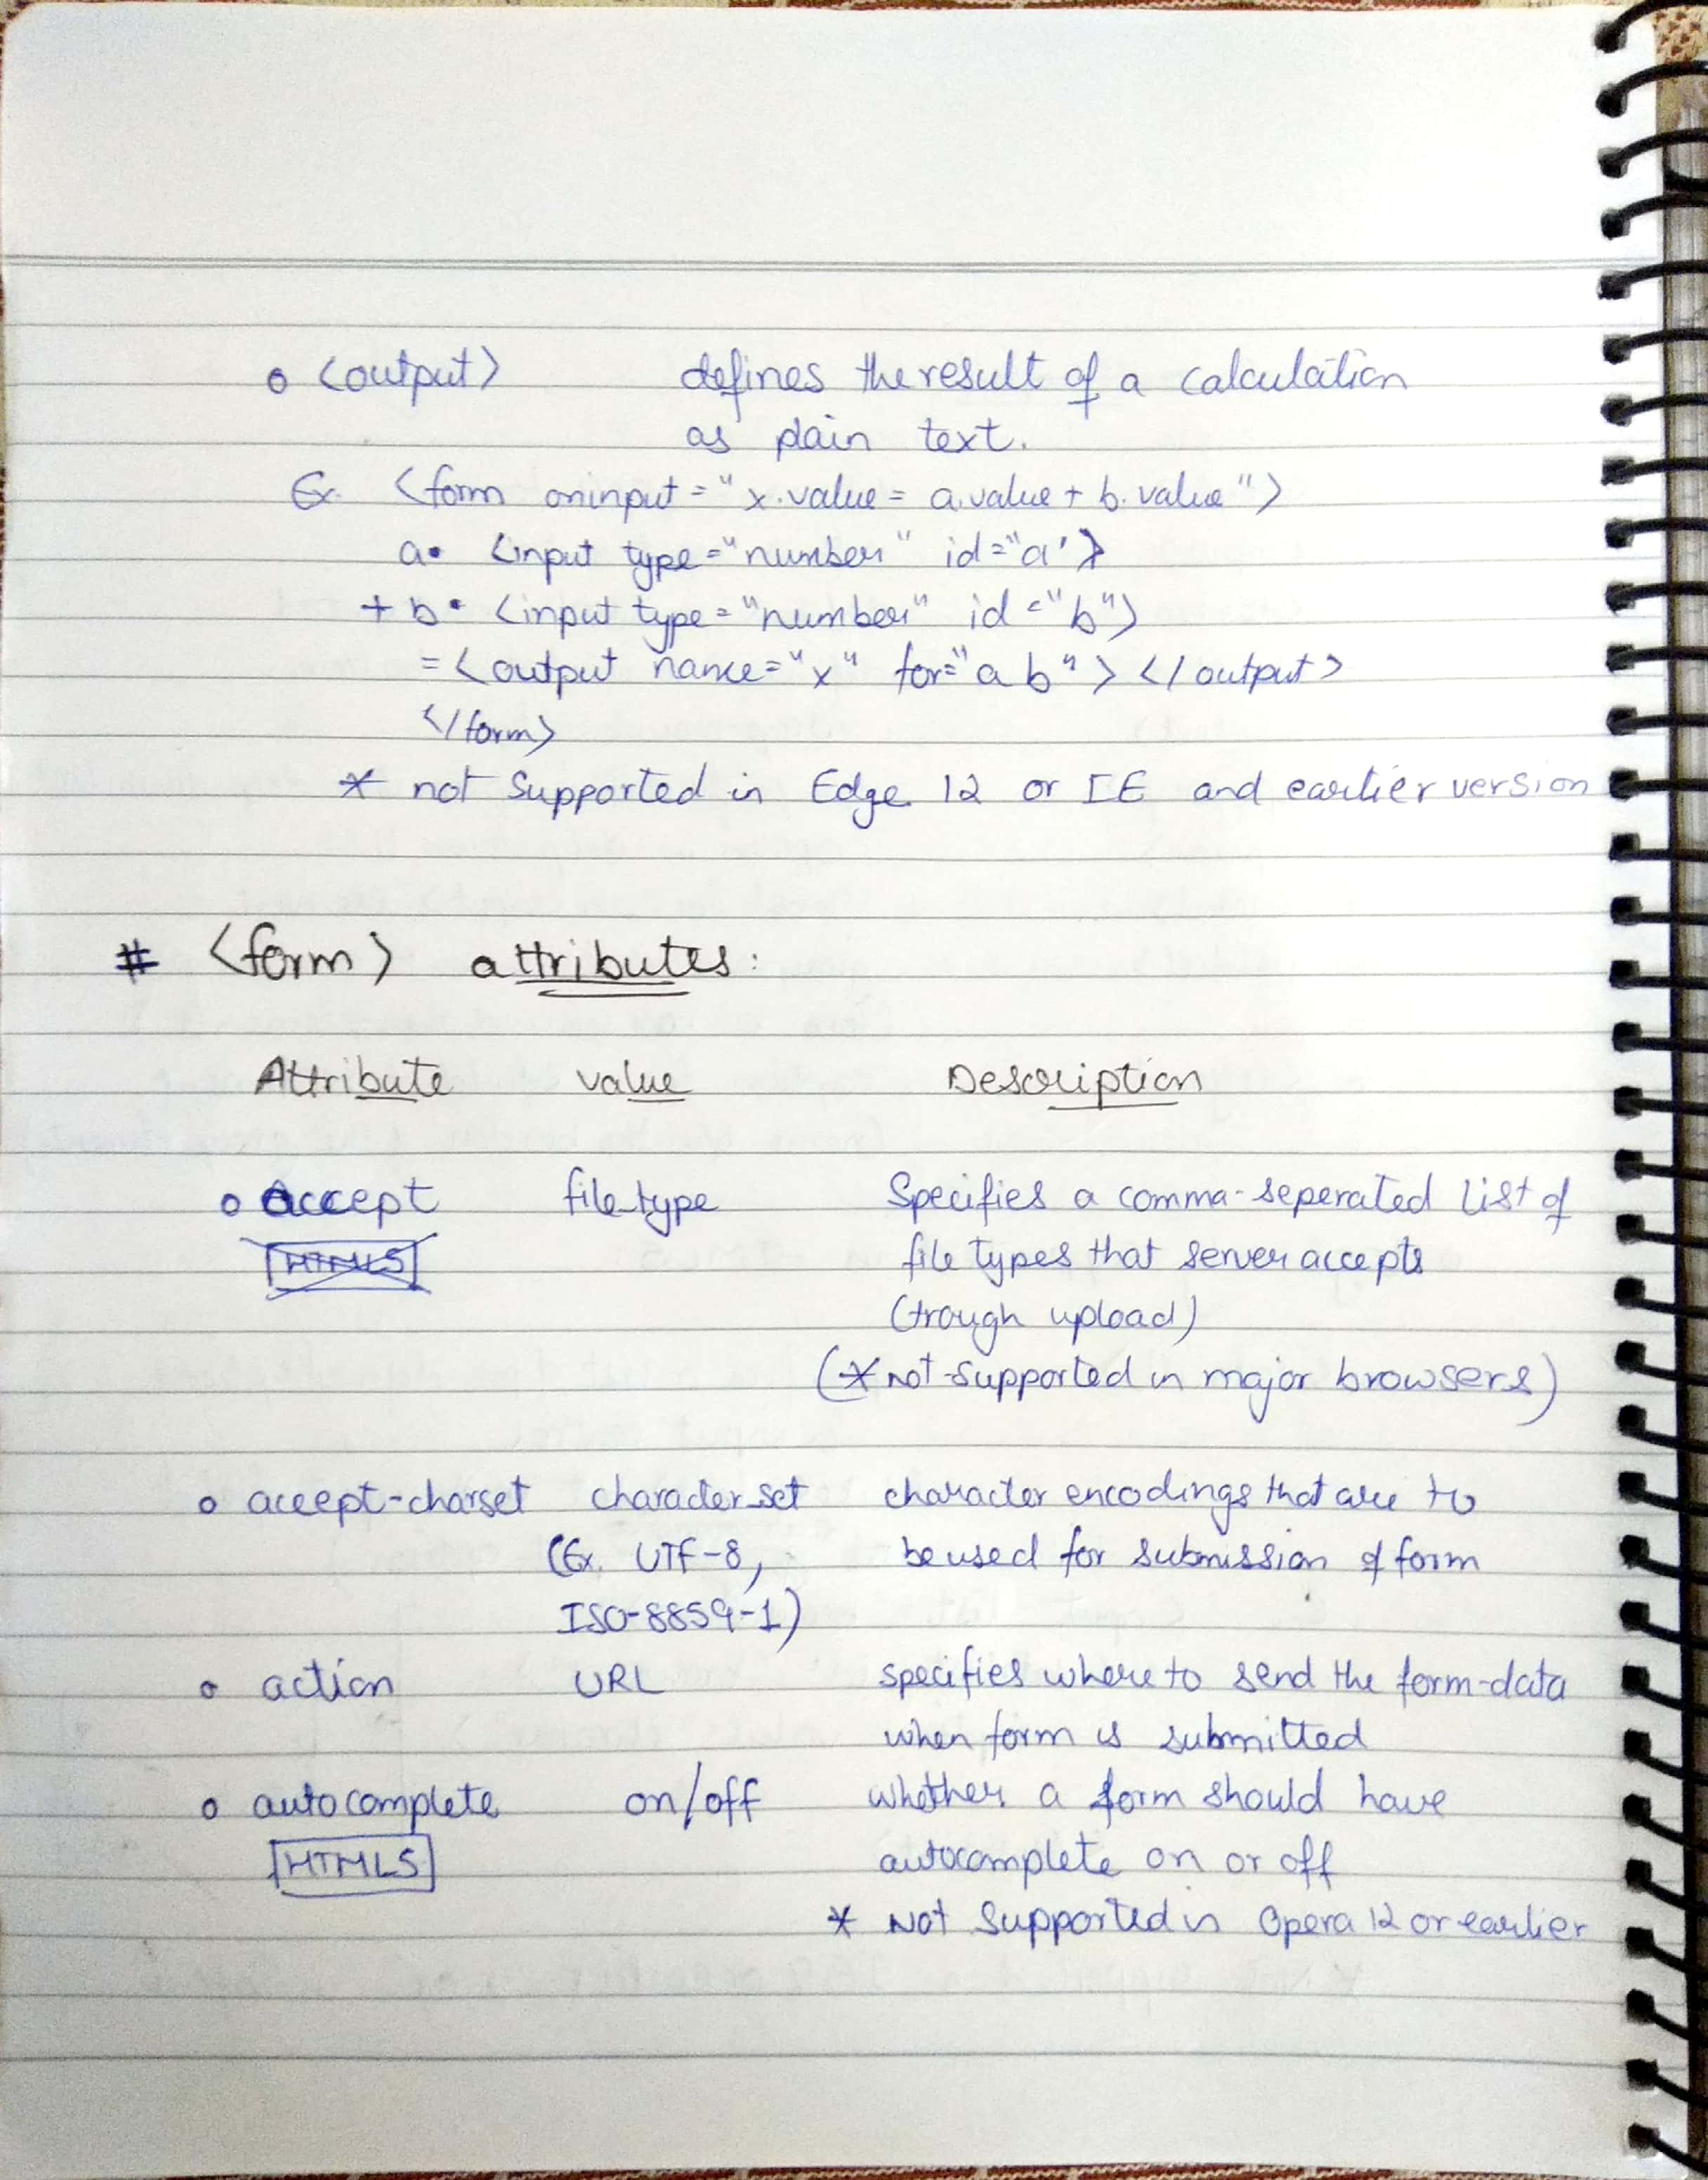 o <output> defines the result of a calculation
as plain text.
Ex. <form oninput="x.value = a.value + b.value">
a• <input type="number" id="a">
+ b• <input type="number" id="b">
=<output name="x" for="a b"></output>
</form>
* not Supported in Edge 12 or IE and earlier version
# <form> attributes:
Attribute value Description
o accept file_type Specifies a comma-seperated list of
HTML5 file types that server accepts
(trough upload)
(* not supported in major browsers)
o accept-charset character_set character encodings that are to
(Ex. UTF-8, be used for submission of form
ISO-8859-1)
o action URL specifies where to send the form-data
when form is submitted
o autocomplete on/off whether a form should have
HTML5 autocomplete on or off
* Not Supported in Opera 12 or earlier